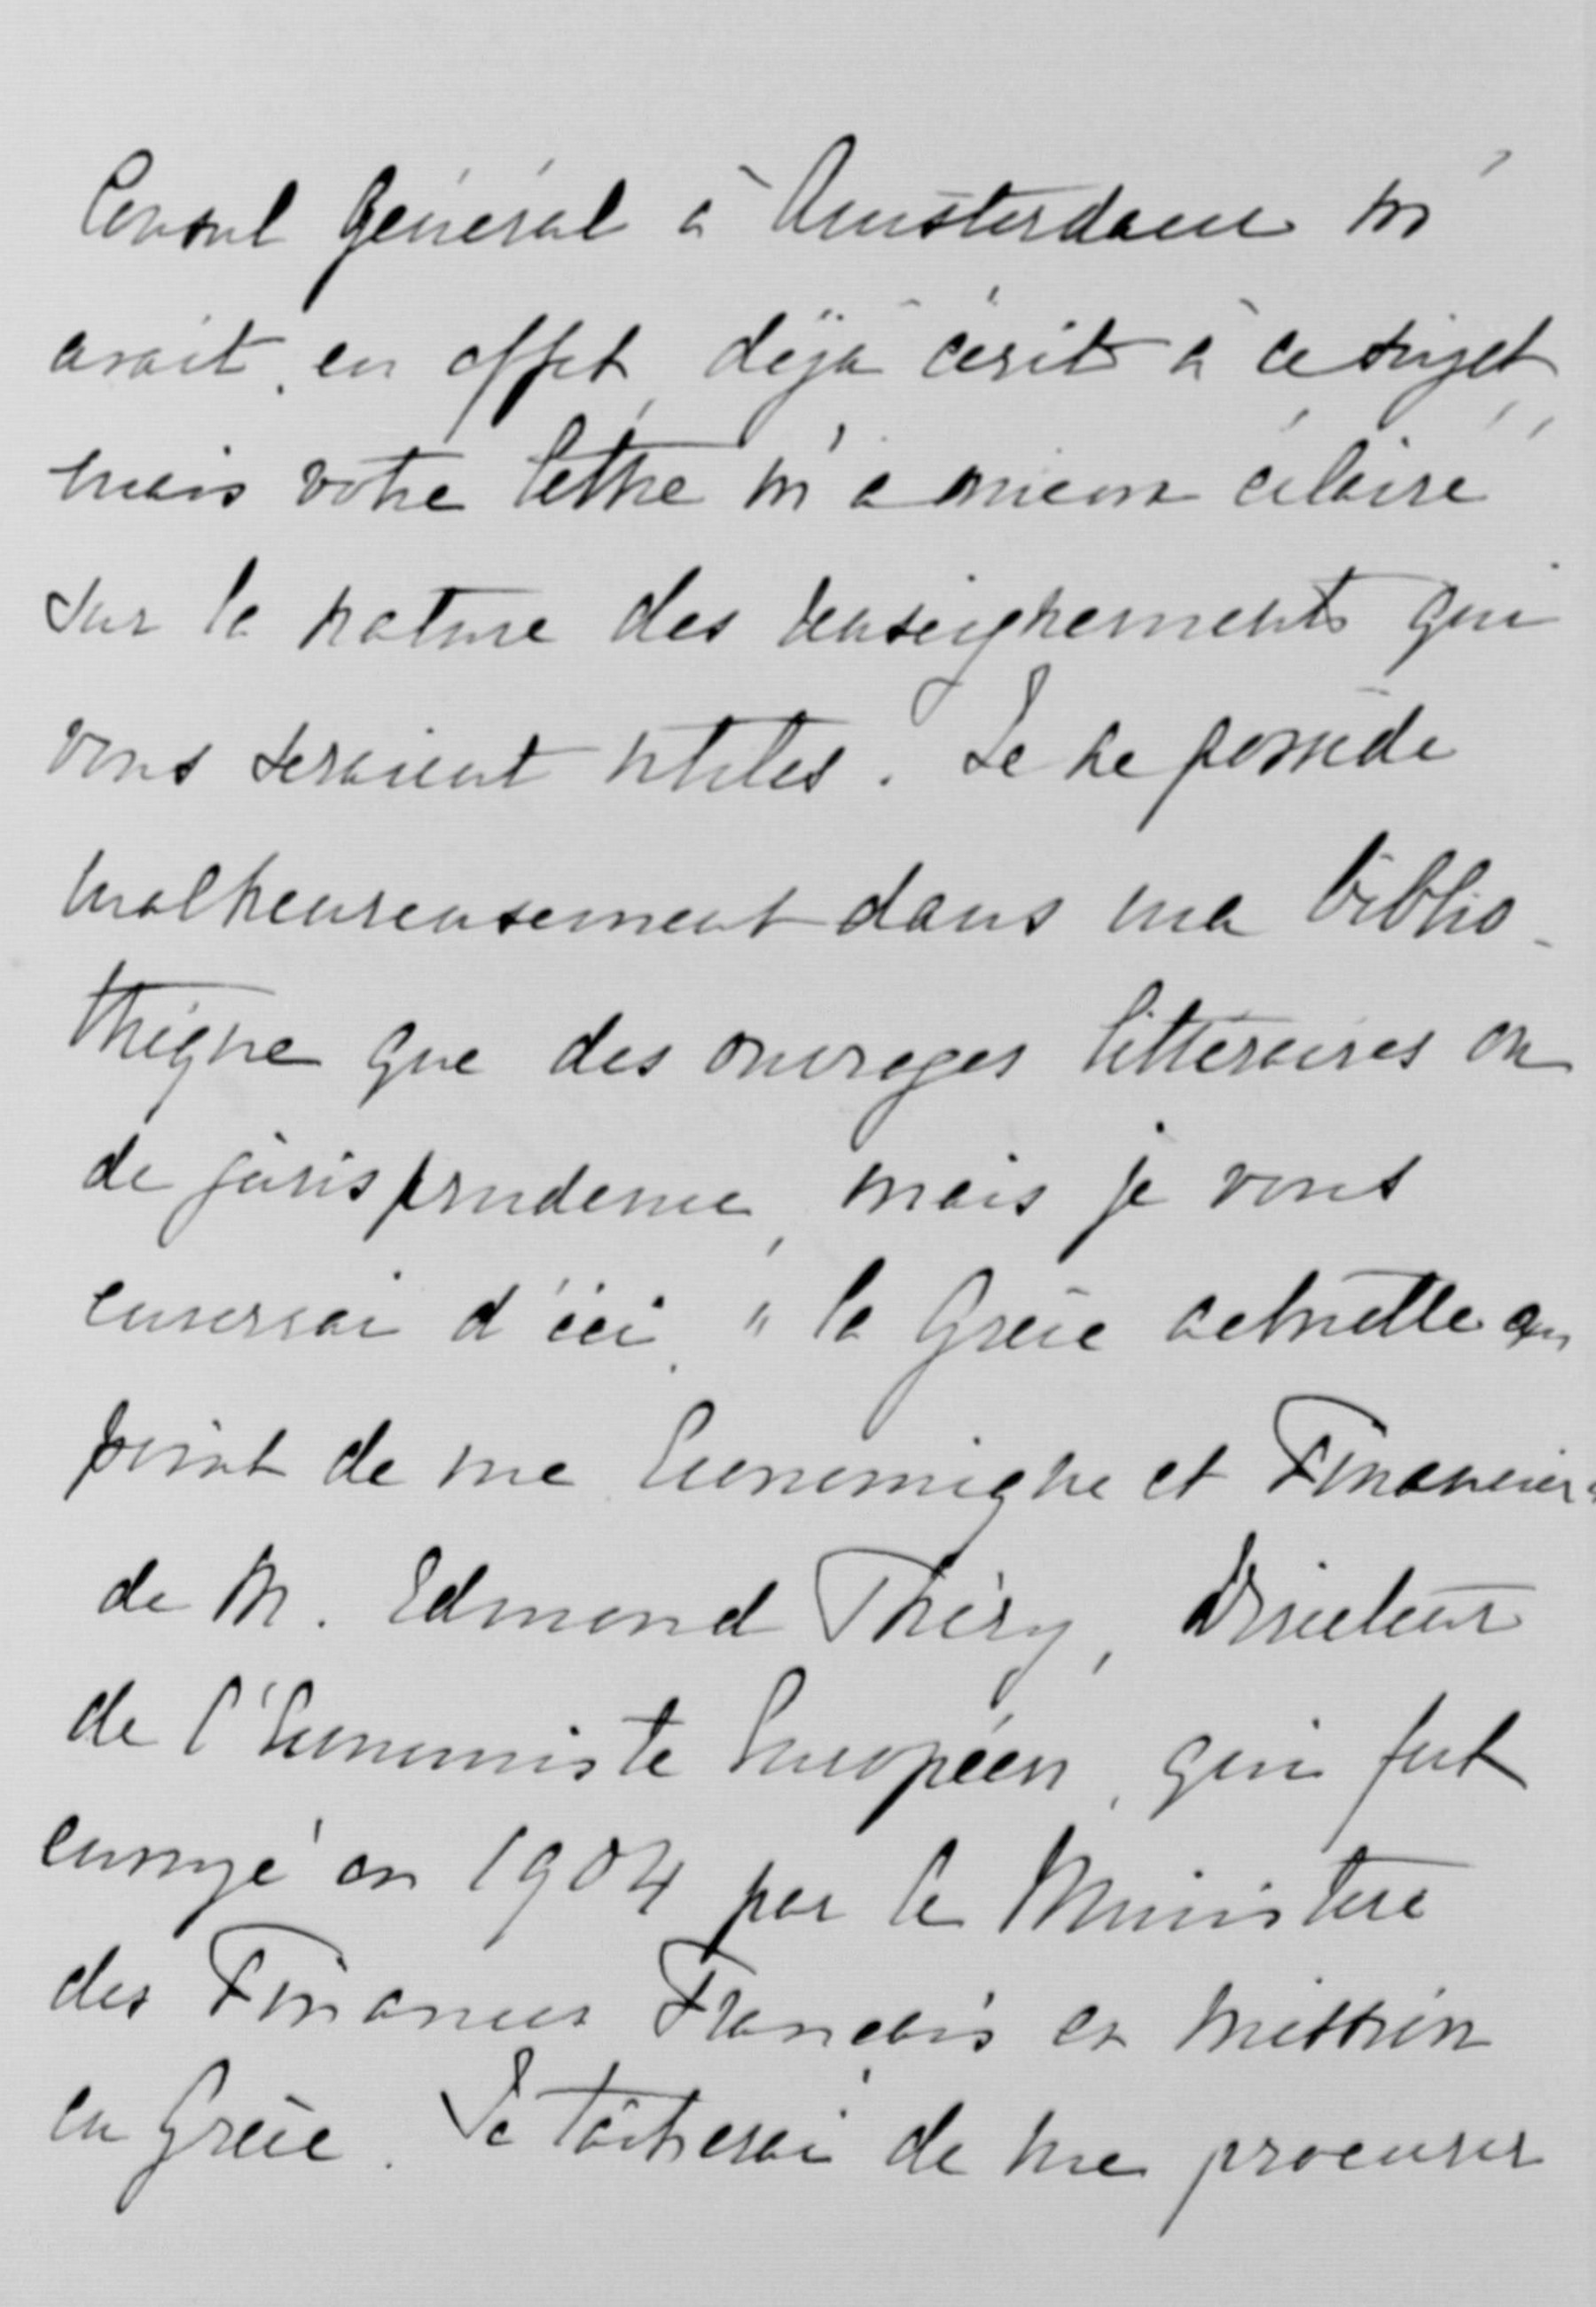 Consul Général à Amsterdam m'
avait, en effet, déjà écrit à ce sujet,
mais votre lettre m'a mieux éclairé
sur la nature des renseignements qui
vous seraient utiles. Je ne possède
malheureusement dans ma biblio-
thèque que des ouvrages littéraires ou
de jurisprudence, mais je vous
enverrai d'ici, "la Grèce actuelle au
point de vue Economique et Financier"
de M. Edmond Théry, Directeur
de l'Economiste Européen, qui fut
envoyé en 1904 par le Ministère
des Finances Français en mission
en Grèce. Je tâcherai de me procurer